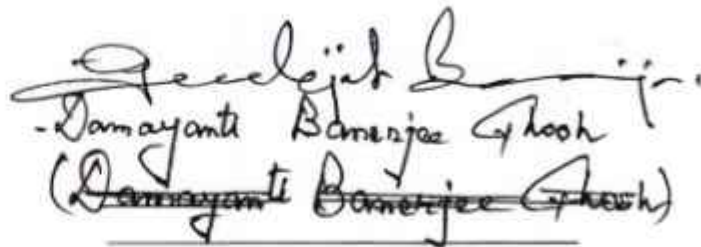 -Damayanti Banerjee Ghosh
(Damayanti Banerjee Ghosh)